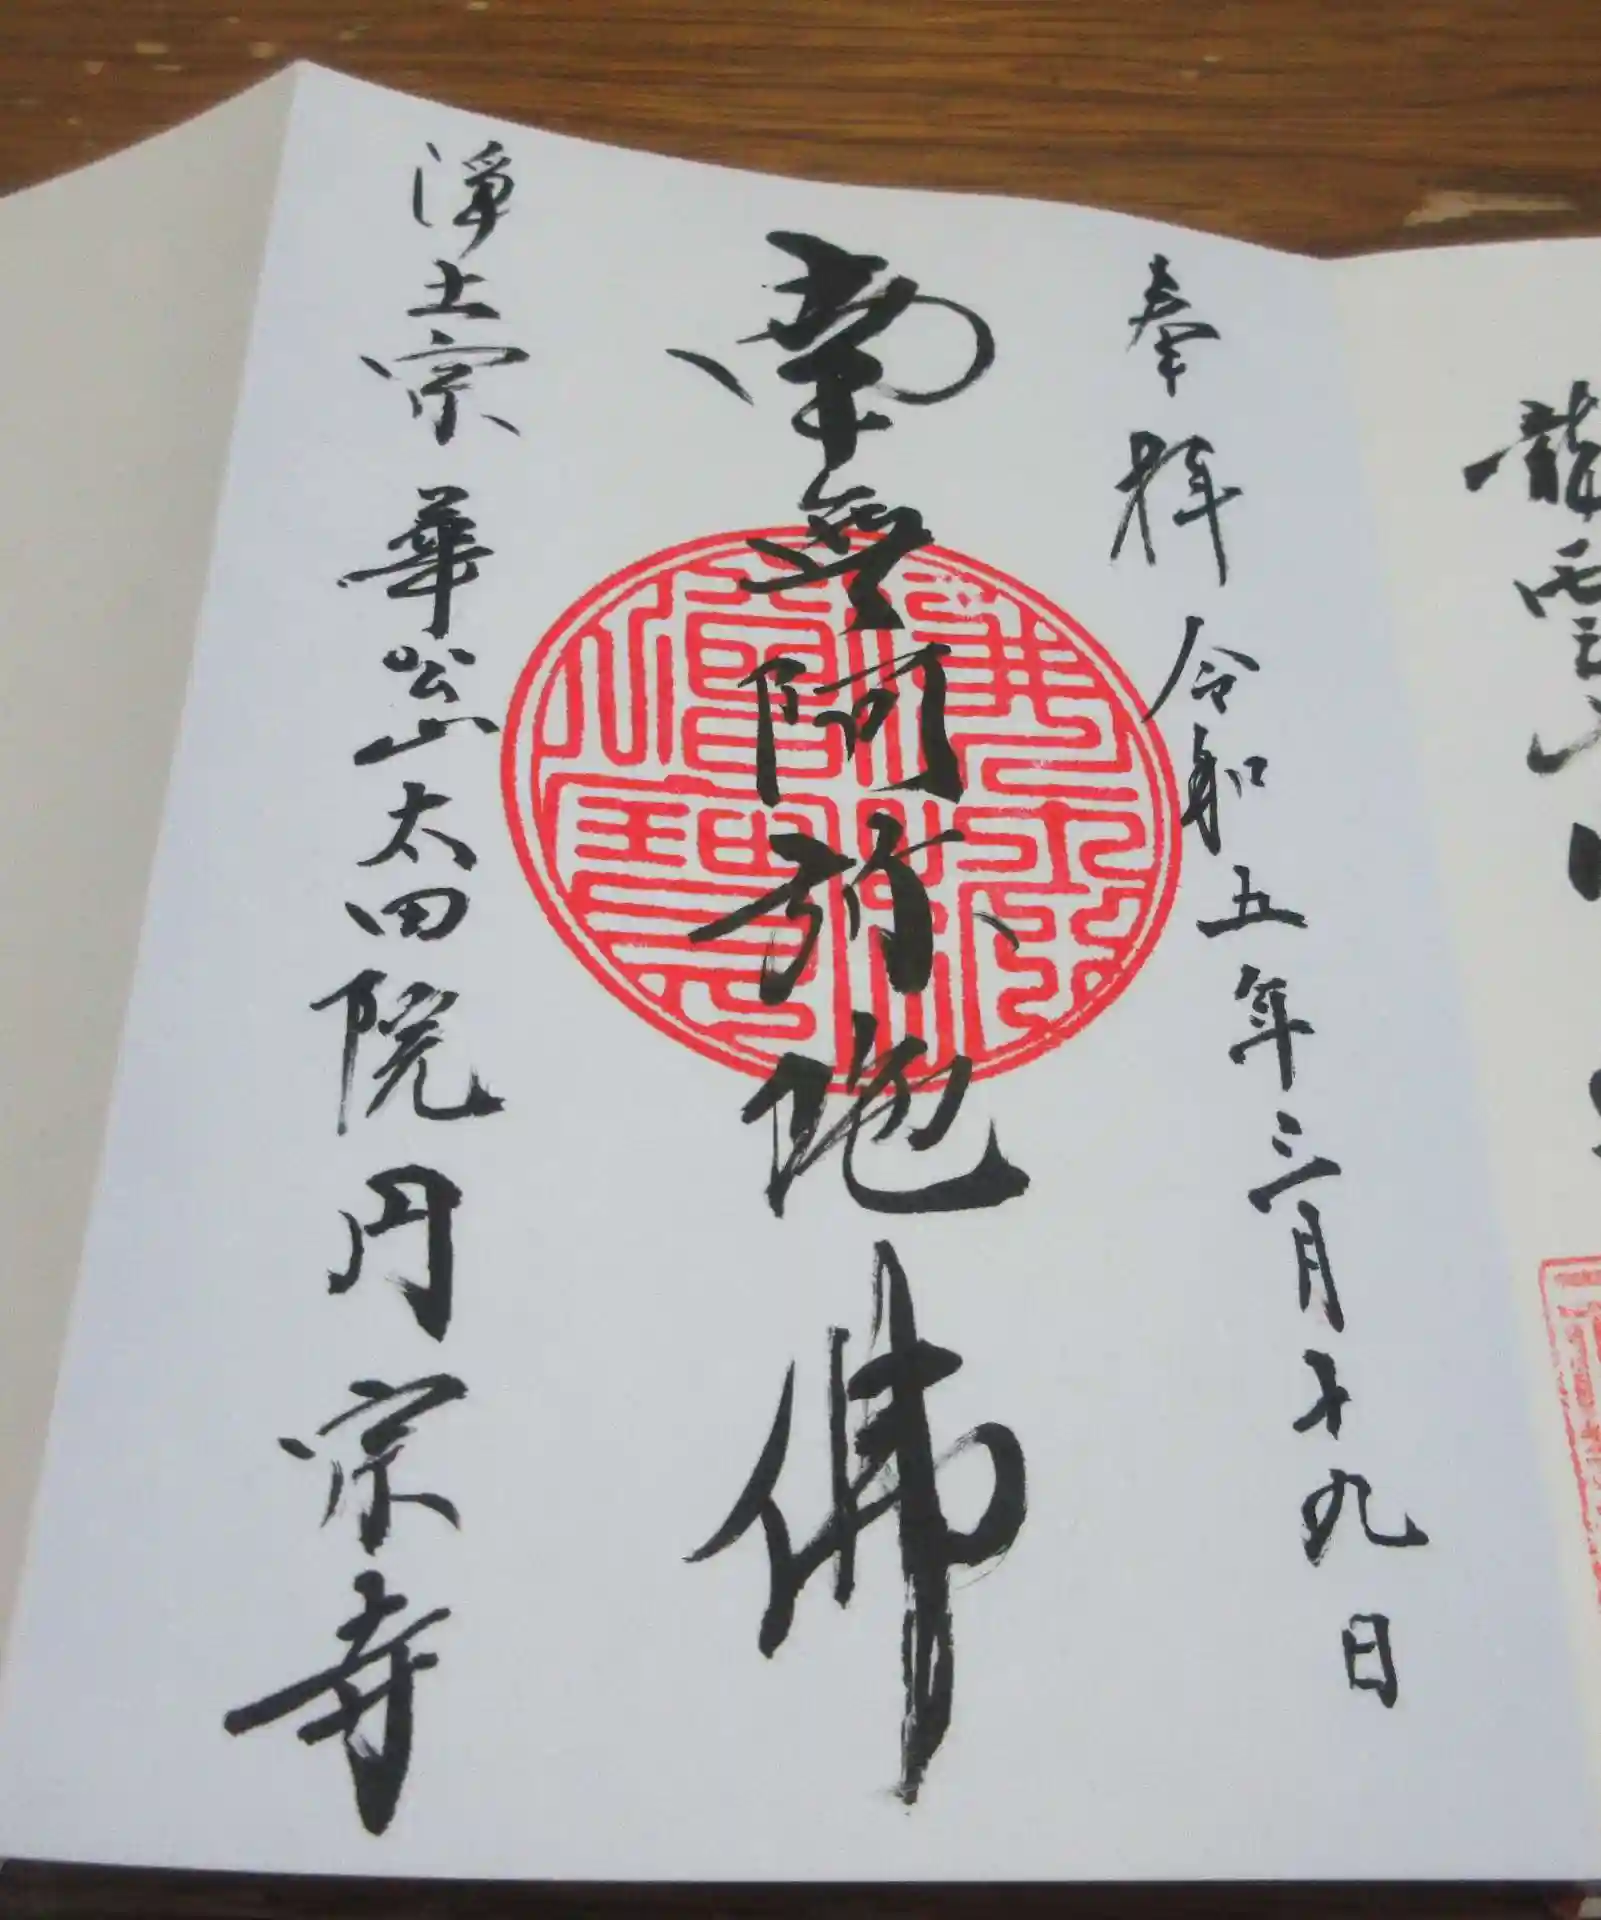 龍雲
奉拝 令和五年三月十九日
南無阿弥陀佛
浄土宗 華山太田院円宗寺